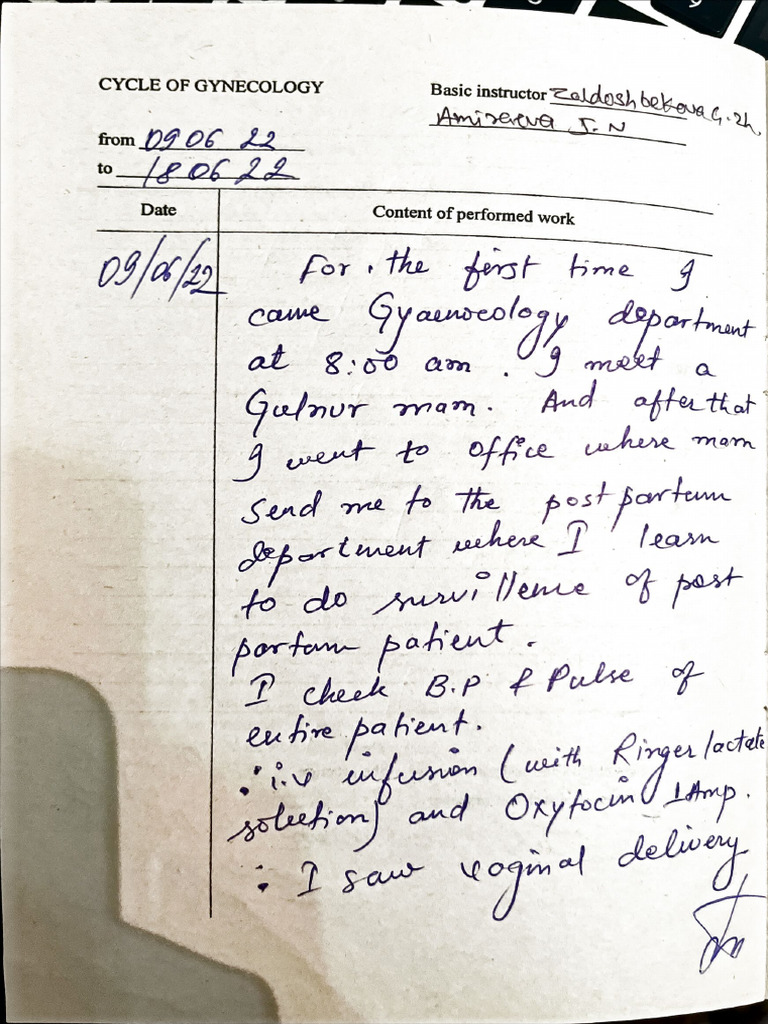 CYCLE OF GYNECOLOGY
Basic instructor Zaldoshbekova G. Zh.
J. N
from 09 06 22
to 18 06 22
Date
Content of performed work
09/06/22
For the first time I
came Gyaenocology department
at 8:00 am. I meet a
Gulnur mam. And after that
I went to office where mam
Send me to the post partum
department where I learn
to do survillence of post
partum patient.
I check B.P & Pulse of
entire patient.
∴ i.v infusion (with Ringer lactate
solution) and Oxytocin 1 Amp.
∴ I saw vaginal delivery